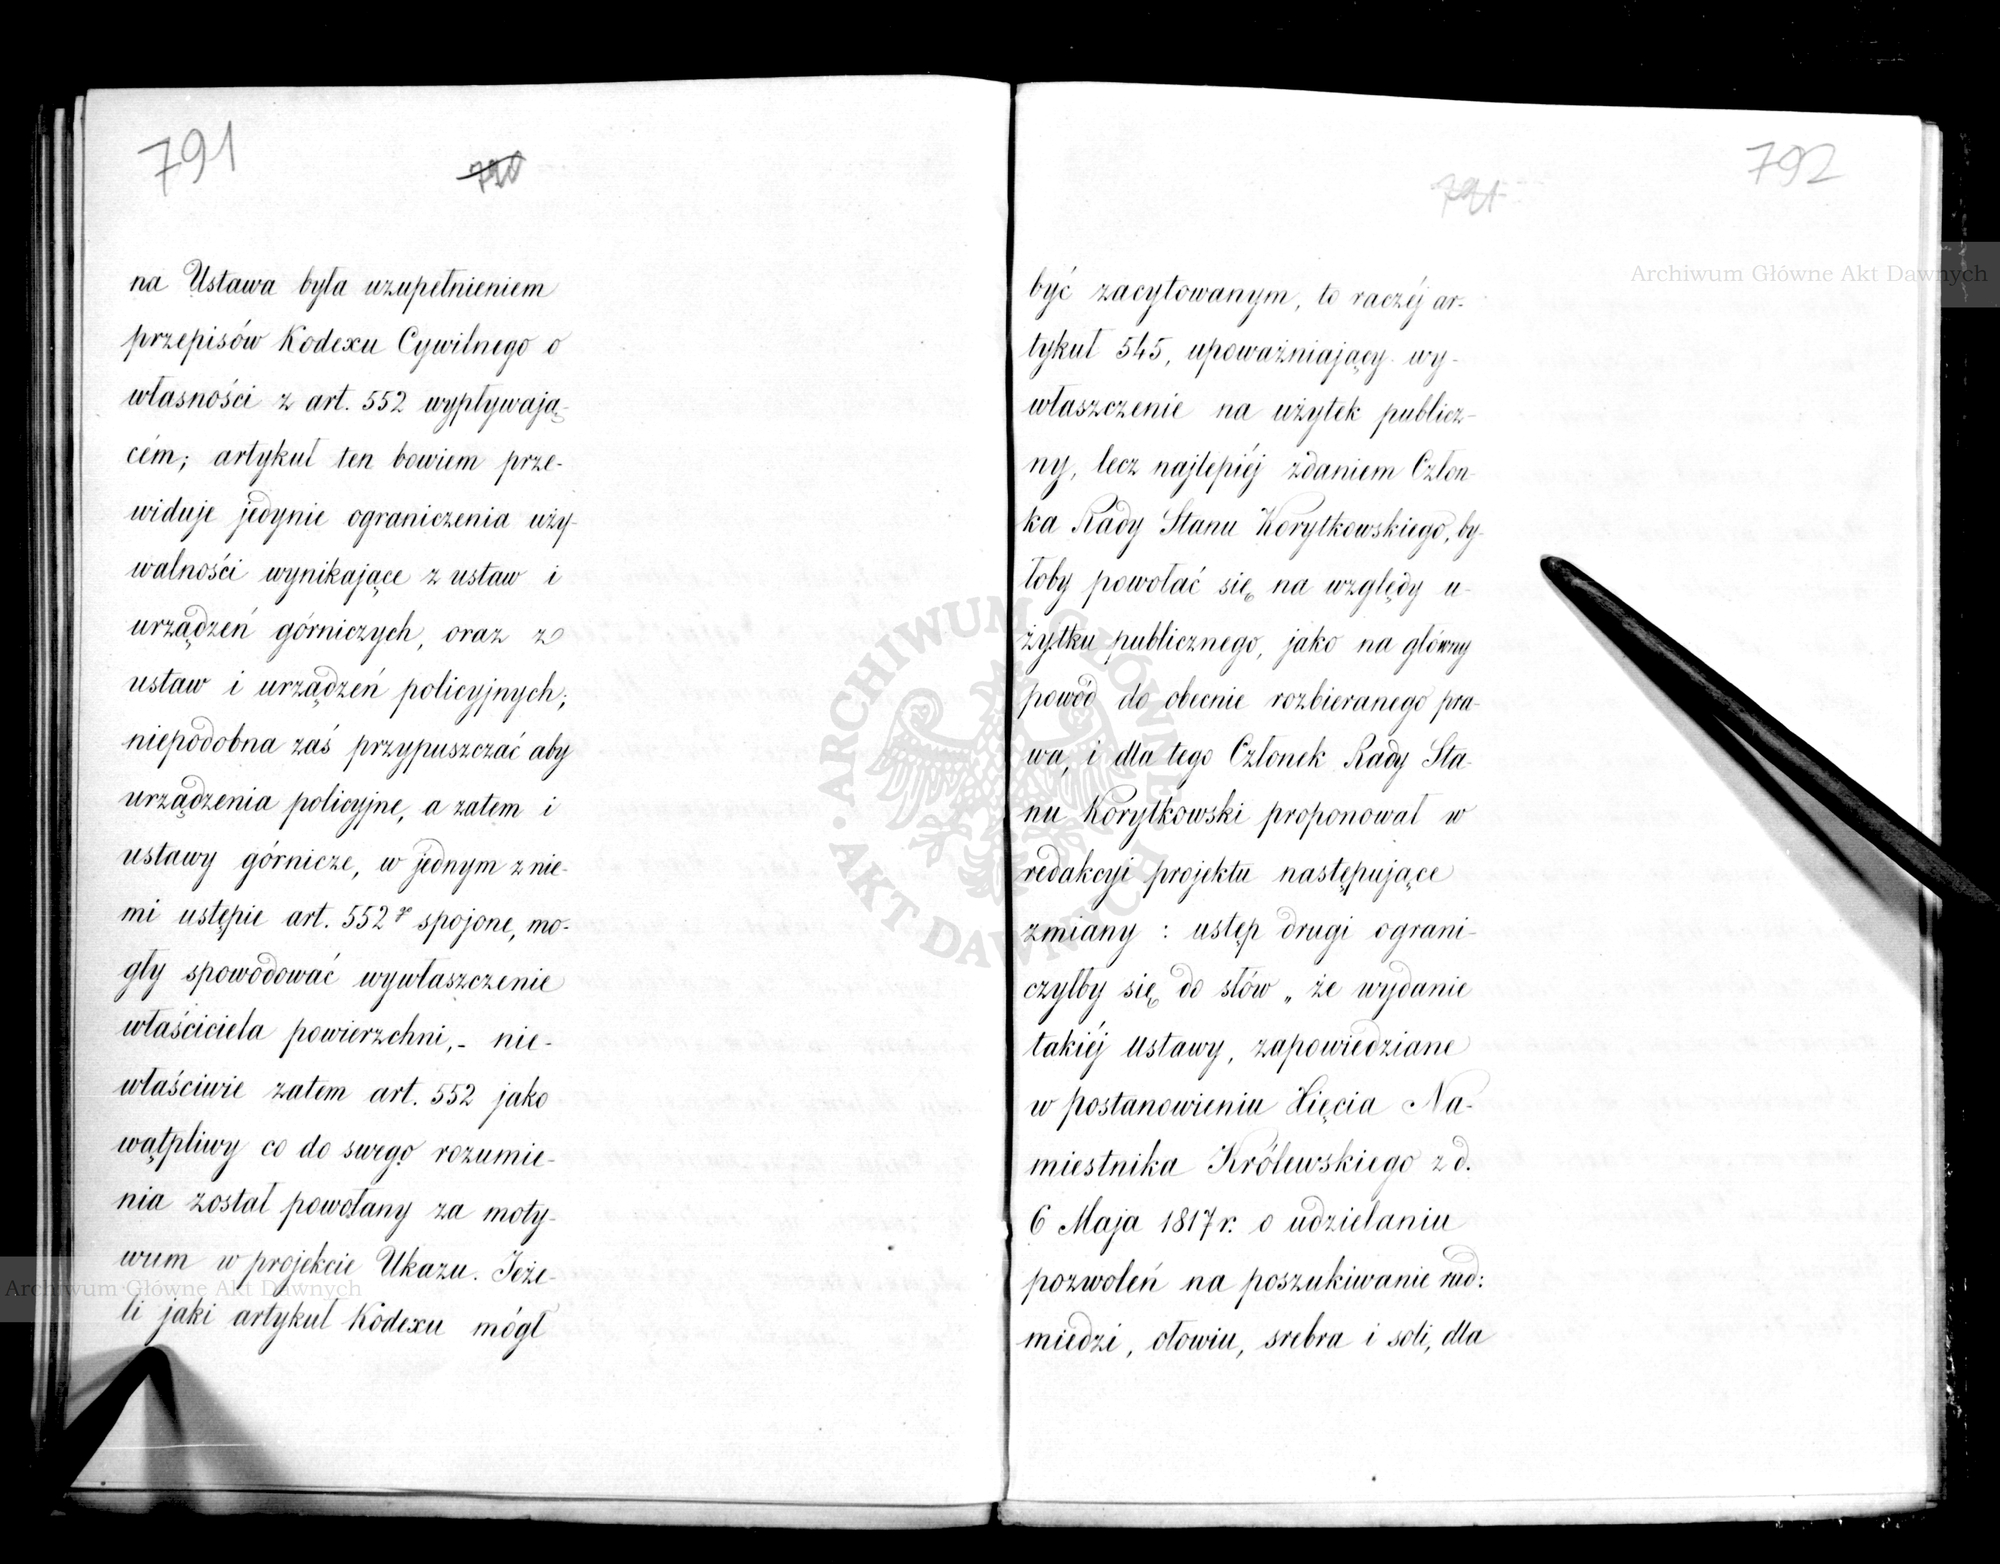 791
790
na Ustawa była uzupełnieniem
przepisów Kodexu Cywilnego o
własności z art. 552 wypływają-
cém; artykuł ten bowiem prze-
widuje jedynie ograniczenia uży-
walności wynikające z ustaw i
urządzeń górniczych, oraz z
ustaw i urządzeń policyjnych;
niepodobna zaś przypuszczać aby
urządzenia policyjne, a zatem i
ustawy górnicze, w jednym z nie-
mi ustępie art. 552go spojone, mo-
gły spowodować wywłaszczenie
właściciela powierzchni,- nie-
właściwie zatem art. 552 jako
wątpliwy co do swego rozumie-
nia został powołany za moty-
wum w projekcie Ukazu. Jeże-
li jaki artykuł Kodexu mógł
792
791
być zacytowanym, to raczéj ar-
tykuł 545, upoważniający wy-
właszczenie na użytek publicz-
ny, lecz najlepiéj zdaniem Człon-
ka Rady Stanu Korytkowskiego, by-
łoby powołać się na względy u-
żytku publicznego, jako na główny
powód do obecnie rozbieranego pra-
wa, i dla tego Członek Rady Sta-
nu Korytkowski proponował w
redakcyi projektu następujące
zmiany : ustęp drugi ograni-
czyłby się do słów „ że wydanie
takiéj ustawy, zapowiedziane
w postanowieniu Xięcia Na-
miestnika Królewskiego z d.
6 Maja 1817 r. o udzielaniu
pozwoleń na poszukiwanie rud:
miedzi, ołowiu, srebra i soli, dla
Archiwum Główne Akt Dawnych
ARCHIWUM GŁÓWNE AKT DAWNYCH
Archiwum Główne Akt Dawnych